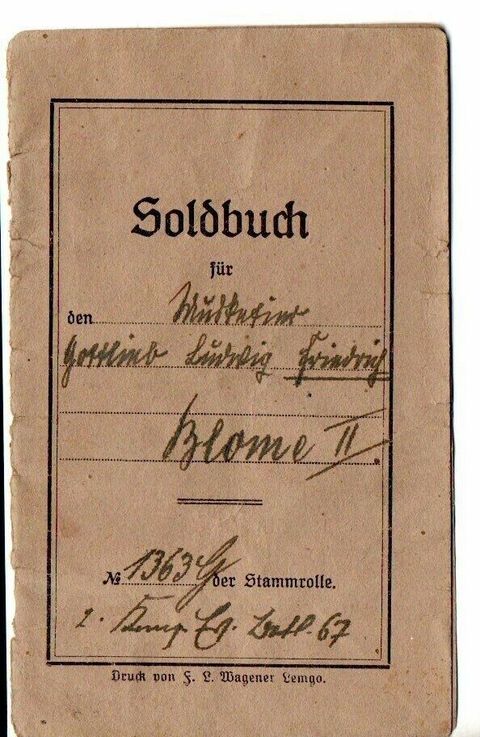 Soldbuch
für
den Musketier
Gottlieb Ludwig Friedrich
Blome II.
№ 1363 G der Stammrolle.
2. Komp. Ers. Batl. 67
Druck von F. L. Wagener Lemgo.